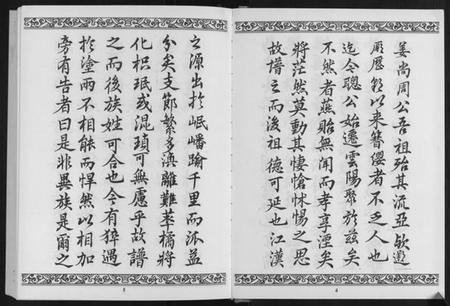 姜尚周公吾祖殆其流亞歟過
厥歷朝以來簪纓者不乏人也
迄今聰公始遷雲陽聚於兹矣
不然者燕貽無聞而孝享湮矣
將茫然莫動其悽愴怵惕之思
故譜立而後祖德可延也江漢
之源出於岷嶓踰千里而派益
分矣支節繁多渙離難萃橘將
化枳珉或混瑣可無慮乎故譜
立而後族姓可合也今有猝遇
於塗兩不相能而悍然以相加
旁有告者曰是非異族是爾之